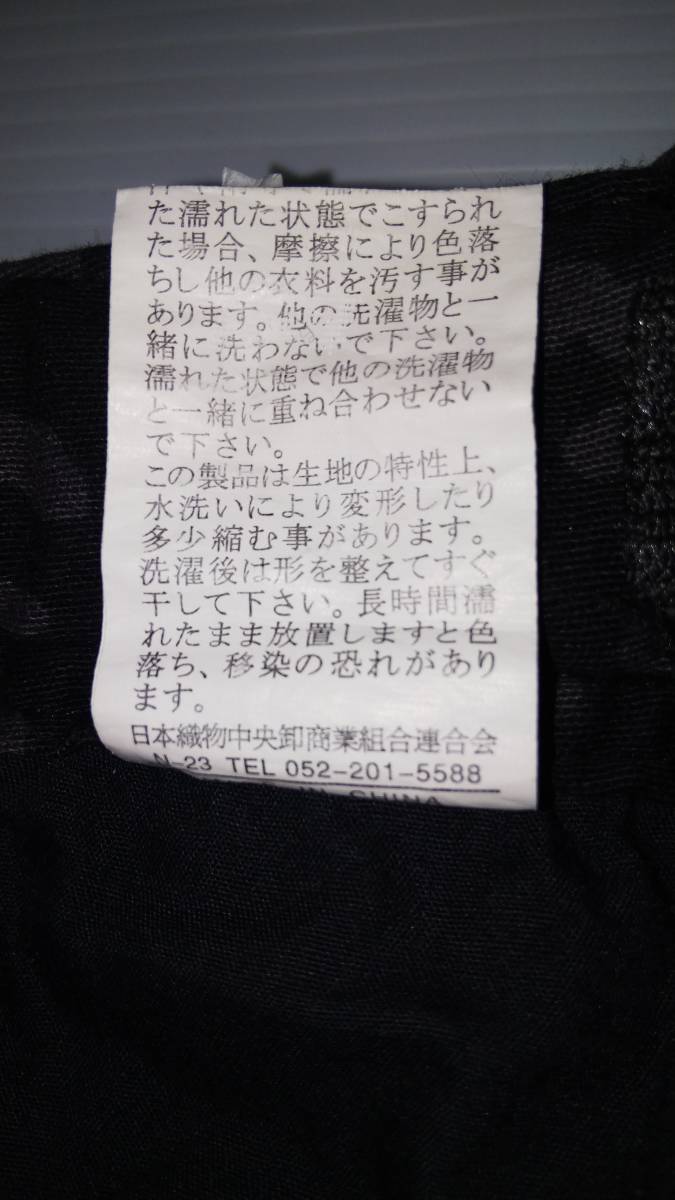 た濡れた状態でこすられ
た場合、摩擦により色落
ちし他の衣料を汚す事が
あります。他の洗濯物と一
緒に洗わないで下さい。
濡れた状態で他の洗濯物
と一緒に重ね合わせない
で下さい。
この製品は生地の特性上、
水洗いにより変形したり
多少縮む事があります。
洗濯後は形を整えてすぐ
干して下さい。長時間濡
れたまま放置しますと色
落ち、移染の恐れがあり
ます。
日本織物中央卸商業組合連合会
N-23 TEL 052-201-5588
IN CHINA